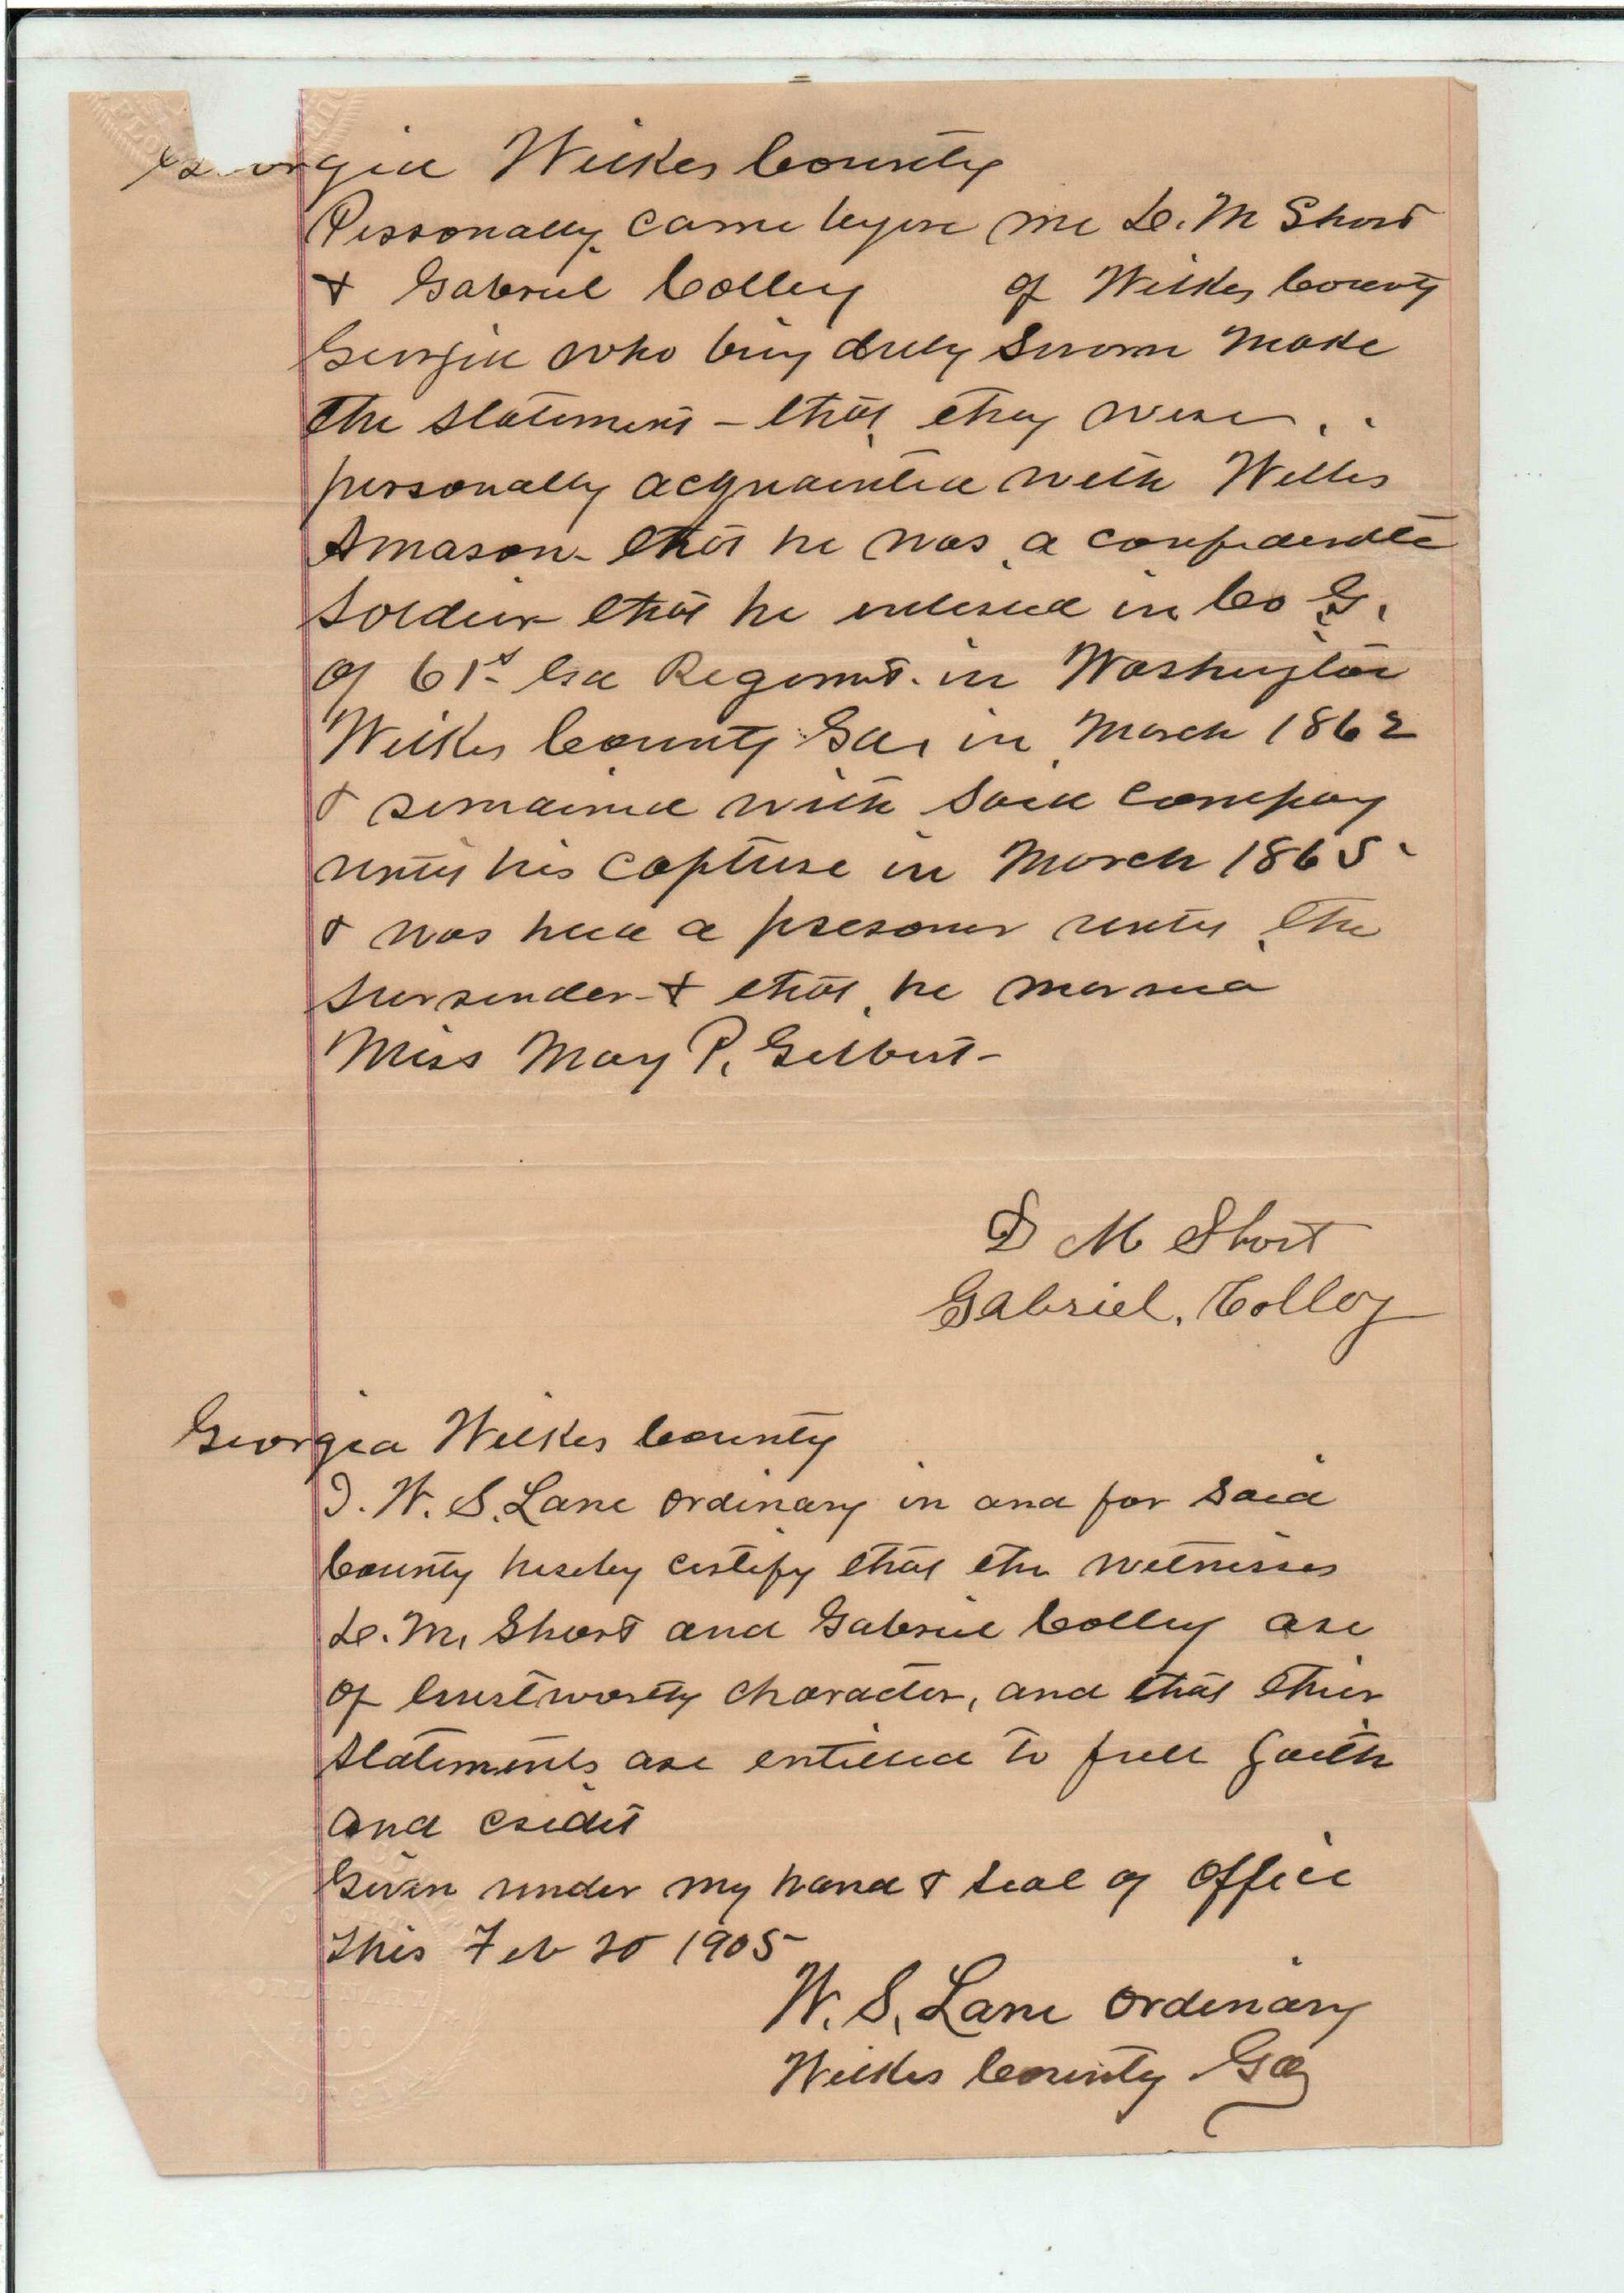 Georgia Wilkes County
Personally came before me D. M Short
& Gabriel Colley of Wilkes County
Georgia who being duly sworn make
the statement – that they were
personally acquainted with Willis
Amason – that he was a confederate
soldier that he enlisted in Co G.
of 61st Ga Regiment – in Washington
Wilkes County Ga, in March 1862
& remained with said company
until his capture in March 1865
& was held a prisoner until the
surrender – & that he married
Miss Mary P. Gilbert –
D M Short
Gabriel. Colley
Georgia Wilkes County
I. W. S. Lane ordinary in and for said
County hereby certify that the witnesses
D. M. Short and Gabriel Colley are
of trustworthy character, and that thier
statements are entitled to full faith
and credit
Given under my hand & seal of office
this Feb 20 1905
W. S. Lane ordinary
Wilkes County Ga